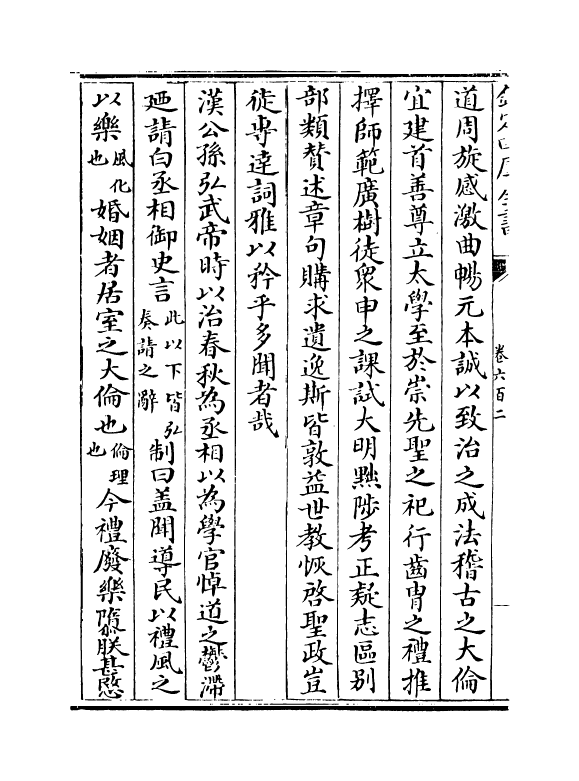 欽定四庫全書
卷六百二
道周旋感激曲暢元本誠以致治之成法稽古之大倫
宜建首善尊立太學至於崇先聖之祀行齒胄之禮推
擇師範廣樹徒衆申之課試大明黜陟考正疑志區別
部類賛述章句購求遺逸斯皆敦益世教恢啓聖政豈
徒専逹詞雅以矜乎多聞者哉
漢公孫弘武帝時以治春秋為丞相以為學官悼道之鬱滯
廼請白丞相御史言此以下皆弘奏請之辭制曰盖聞導民以禮風之
以樂風化也婚姻者居室之大倫也倫理也今禮廢樂隳朕甚愍